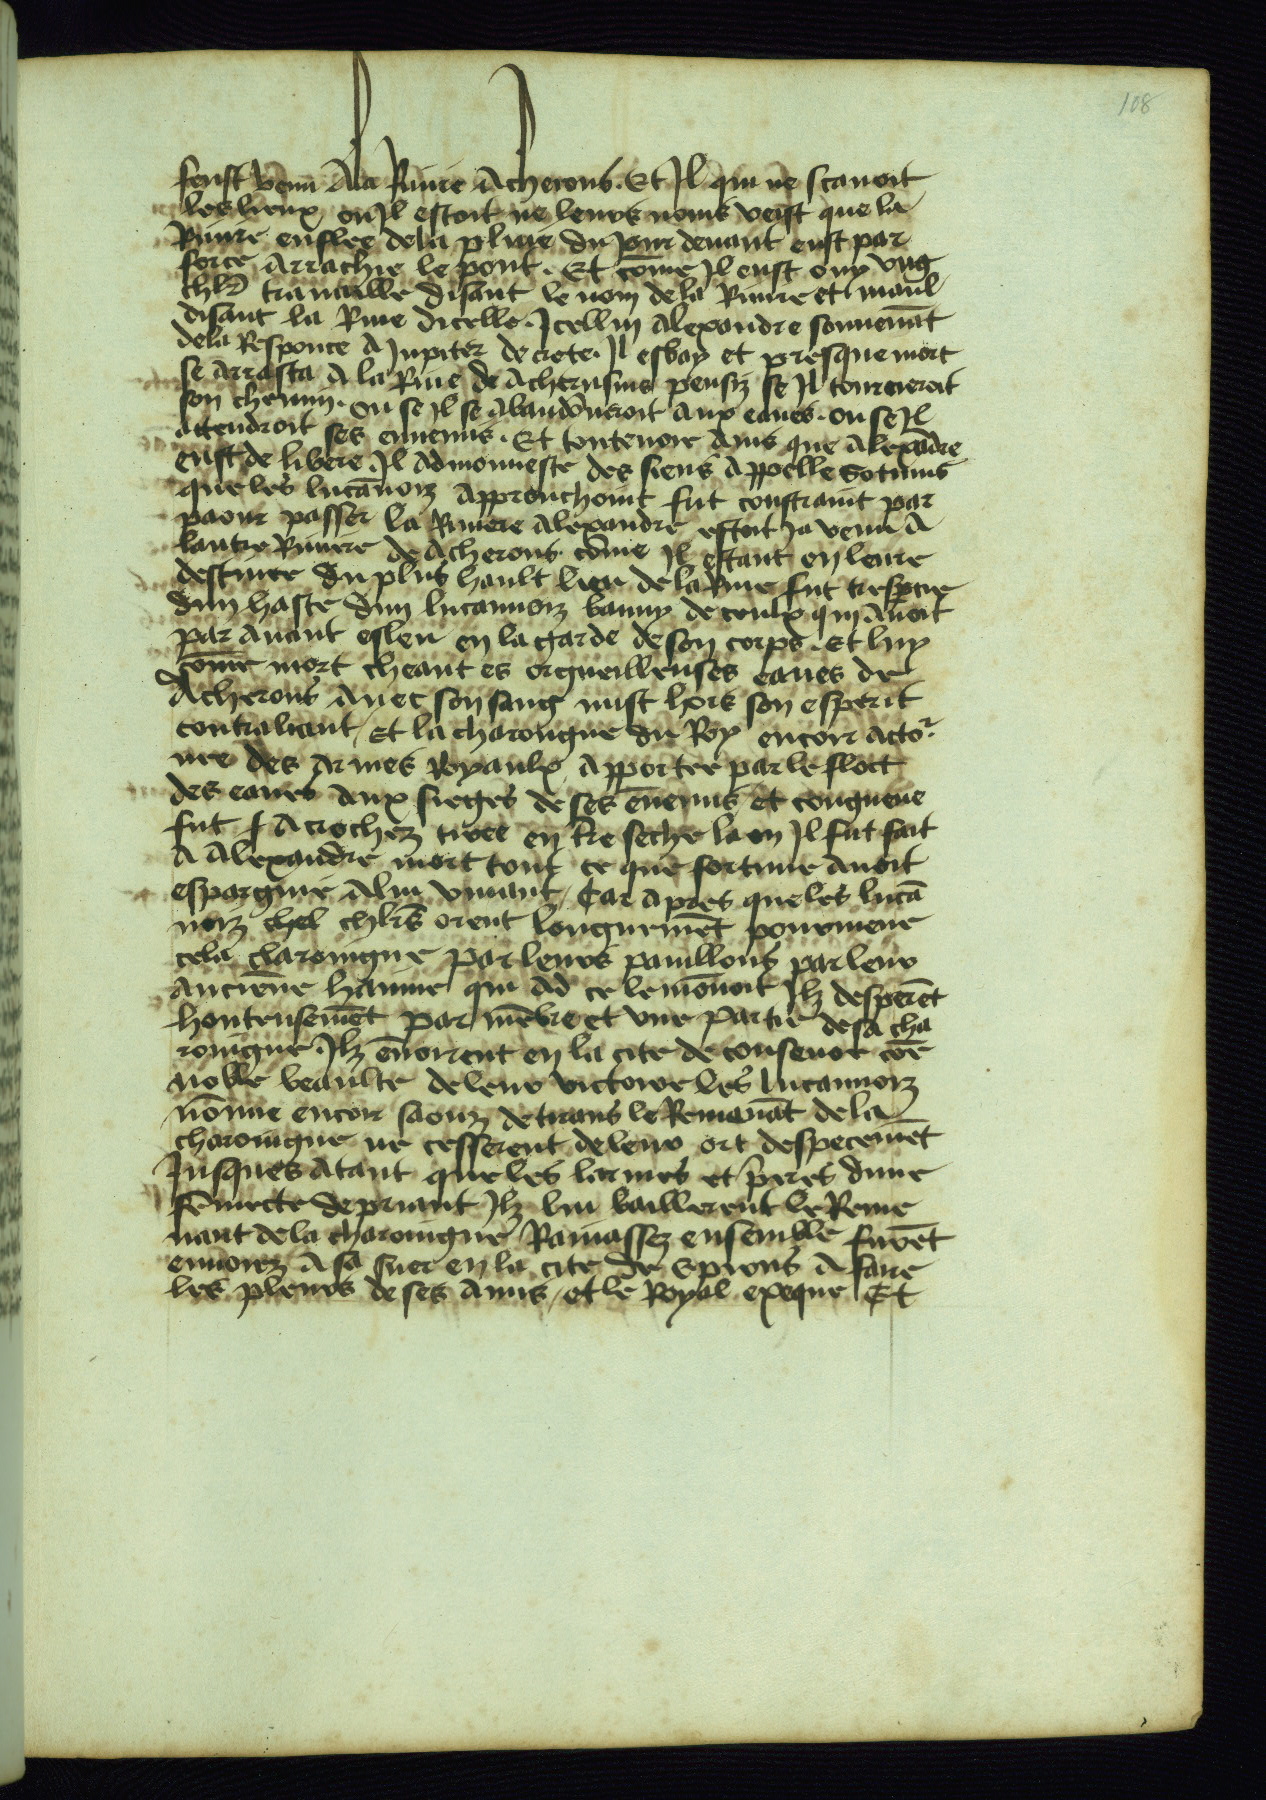 108
feust venu Ala Riuire Acherons. Et Il qui ne scauoit
les lieux ou Il estoit ne leurs noms veist que la
Riuire enflee dela pluye du jour deuant eust par
force Arrachie le pont. Et cōme Il eust ouy vng
chlr̄ trauaille disant le nom dela Riuire et maul
disant la Riue dicelle. Icelluy Alexandre souuenāt
dela Responce A Jupiter de crete. Il esbay et presque mort
se Arresta A la Riue de Acherusius pensiz se Il tourneroit
son chemin. ou se Il se Abandōneroit Aux eaues. ou se Il
Attendroit ses ennemis. Et toutenoie Ains que Alexādre
eust de libere. Il Admonneste des siens Appelle Sotimus
que les lucānois Approuchoint fut constraint par
paour passer la Riuiere Alexandre estoit Ja venu A
lautre Riuiere de Acherons cōme Il estant en leure
destinee du plus hault lieu dela Riue fut trespercie
dun haste dun lucannois banny de ceulx qui Auoit
par Auant esleu en la garde de son corps. Et luy
cōme mort cheant es orgueilleuses eaues de
Acherons Auec son sang mist hors son esperit
contraliant, Et la charongne du Roy encorr Acto.r
nee des Armes Royaulx Apportee par le flott
des eaues Aux sieges de ses ēnemis et congneue
fut f Acrochez tiree en t̄re seche la ou Il fut fait
A Alexandre mort tout ce que fortune Auoit
espargnie Alui viuant, Car Apres que les lucā
nois chel chlr̄s orent longuemēt pourmene
cela charoingne par leurs pauillons par leur
Anciēne hainne qui Ad ce lemōuoit Ilz desperēt
honteusemēt par mēbre et vne partie de sa cha
roingne. Ilz ēuorrent en la cite de consence cōe
noble beaulte de leur victoire les lucannois
nōnne encorr saouz de tirans le Remanāt de la
charoingne ne cesserent de leur ort despecemēt
Jusques Atant que les larmes et p̄eres dune
fēmecte depriant Ilz lui baillerent le Reme
nant de la charoingne, Ramassez ensemble furēt
enuoiez A sa suer en la cite de Epirons A faire
les pleurs de ses Amis, et le Royal exeque Et